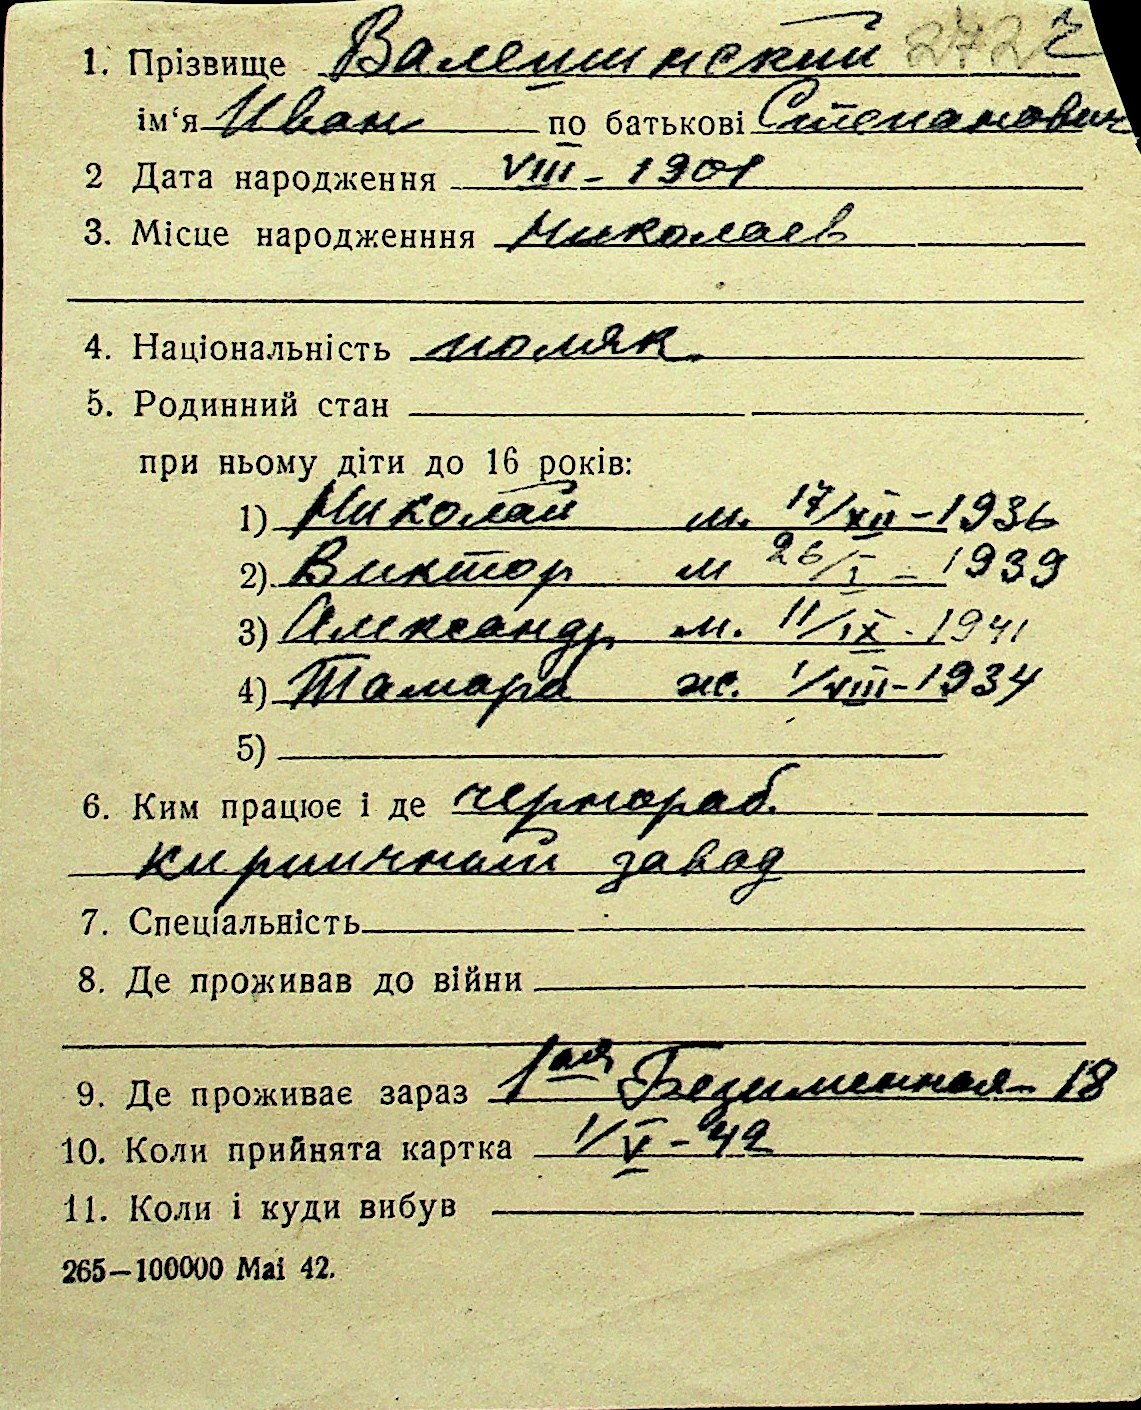 1. Прізвище Валешинский 272 2
ім‘я Иван по батькові Степанович
2 Дата народження VIII - 1901
3. Місце народженння Николаев
4. Національність поляк
5. Родинний стан
при ньому діти до 16 років:
1) Николай м. 17/XII - 1936
2) Виктор м 26/I - 1939
3) Александр м. 11/IX - 1941
4) Тамара ж. 1/VIII - 1934
5)
6. Ким працює і де чернораб.
кирпичный завод
7. Спеціальність
8. Де проживав до війни
9. Де проживає зараз 1ая Безименная - 18
10. Коли прийнята картка 1/V - 42
11. Коли і куди вибув
265—100000 Mai 42.